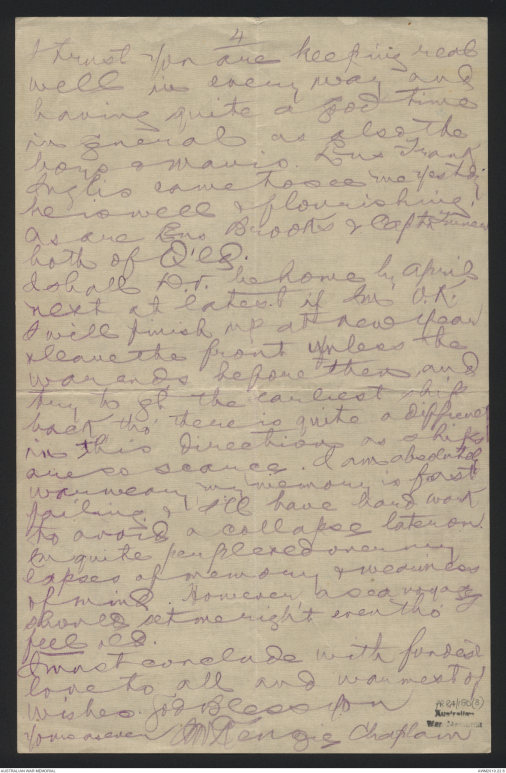 4
I trust you are keeping real
well in every way and
having quite a good time
in general as also the
boys & Mavis. Lieu Frank
Inglis came to see me yestdy;
he is well & flourishing,
as are Lieu Brooks & Capt
both of Q'ld.
I shall D.V. be home by April
next at latest if I'm O.K.
I will finish up at new year
& leave the front unless the
war ends before then and
try to get the earliest ship
back tho' there is quite a difference
in this direction as ships
are so scarce. I am absolutely
warweary my memory is fast
failing & I'll have hard work
to avoid a collapse later on.
I'm quite perplexed over my
lapses of memory & weariness
of mind. However a sea voyage
should set me right even tho' I
feel old.
I must conclude with fondest
love to all and warmest of
wishes. God Bless you
Yours as ever McKenzie Chaplain
AUSTRALIAN WAR MEMORIAL
AWM2019.22.5